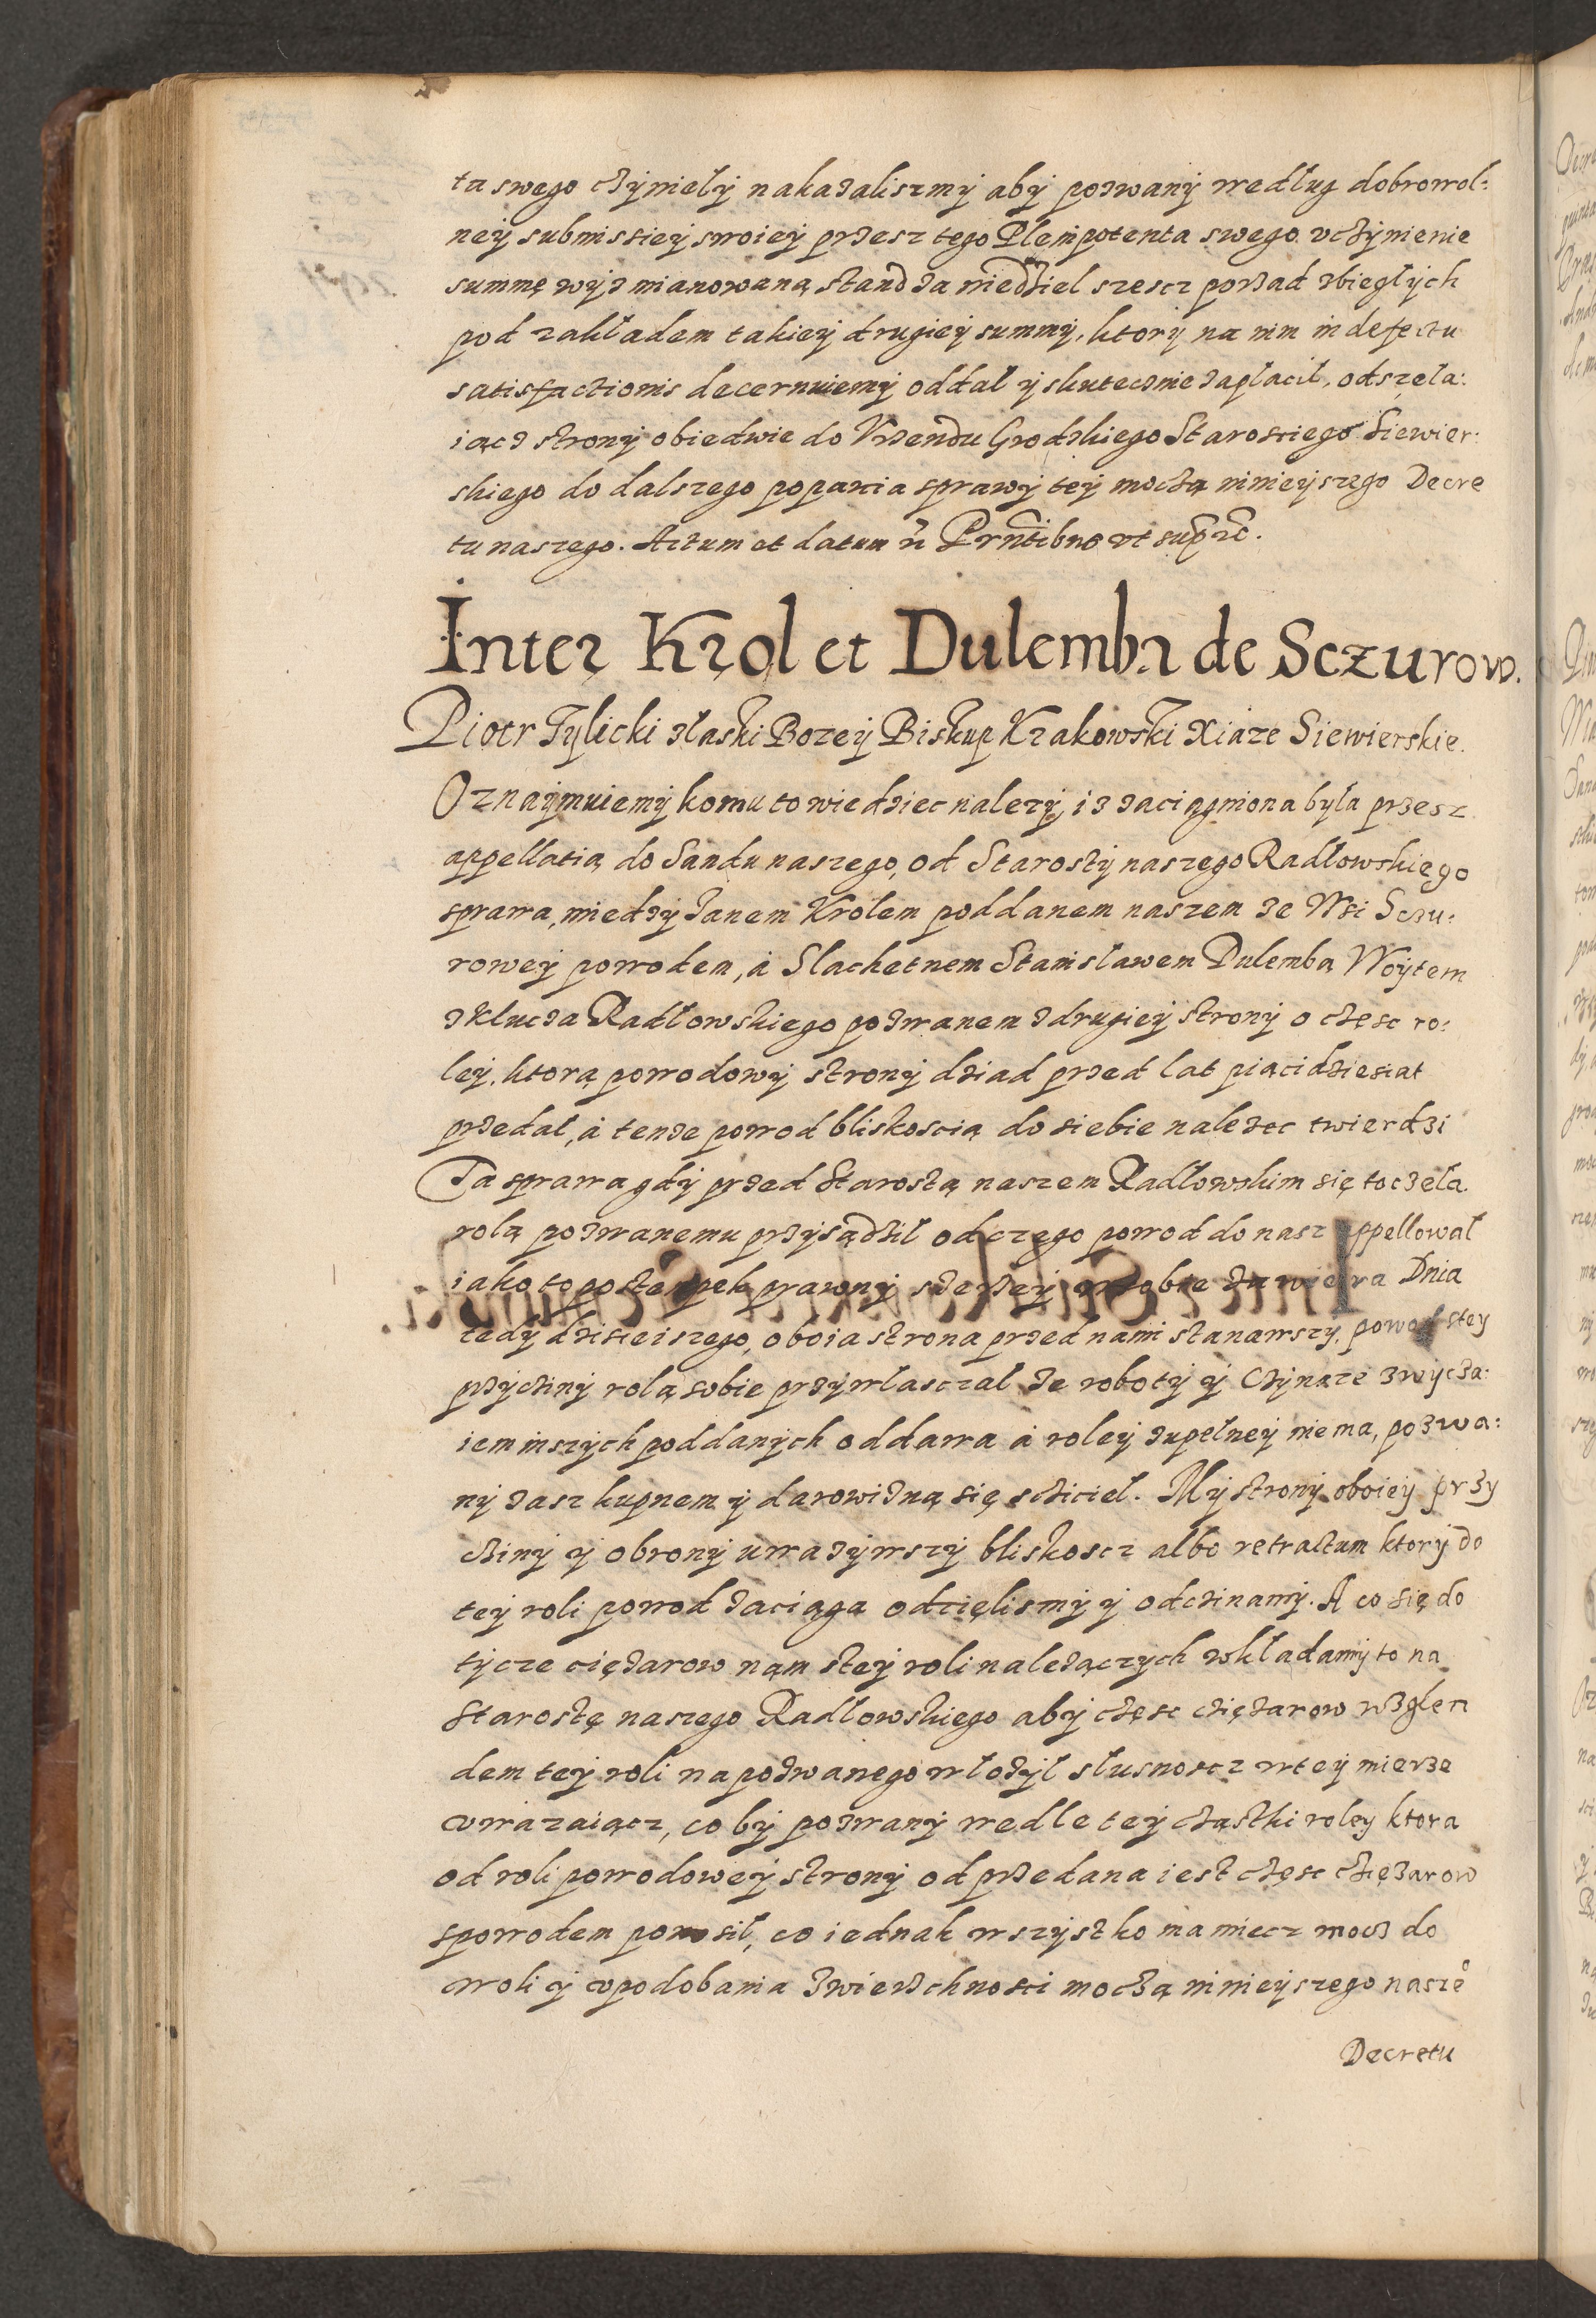 ta swego czÿnielÿ nakazaliszmÿ abÿ pozwanÿ według dobrowol:
neÿ submissieÿ swoieÿ przesz tego Plenipotenta swego vczÿnienie
summę wÿz mianowaną stand za niedziel szescz porzad zbiegłÿch
pod zakładem takieÿ drugieÿ summÿ, ktorÿ na nim in defectu
satisfactionis decernuiemÿ oddał ÿ skutecznie zapłacił, odszęła:
iącz stronÿ obiedwie do Vrzendu Grodzkiego Starosciego Siewier:
skiego do dalszego poparcia sprawÿ teÿ moczą ninieÿszego Decre
tu naszego. Actum et datum Prntibus vt sup
Inter Krol et Dulemba de Sczurow.
Piotr Tylicki złaski Bozeÿ Biskup Krakowski Xiaze Siewierskie.
Oznaÿmuiemÿ komu to wiedziec nalezÿ, iz zaciągniona była przesz
appellatią do Sandu naszego, od Starostÿ naszego Radłowskiego
sprawa, miedzÿ Janem Krolem poddanem naszem ze Wsi Sczu:
roweÿ powodem, á Slachetnem Stanisławem Dulembą Woÿtem
zklucza Radłowskiego pozwanem zdrugieÿ stronÿ o częsc ro:
leÿ, ktorą powodowÿ stronÿ dziad przed lat piącidziesiat
przedał, á tenze powod bliskoscią do siebie nalezec twierdzi
Ta sprawa gdÿ przed Starostą naszem Radlowskim się toczęła
rolą pozwanemu przÿsądził od czego powod do nasz appellował
iako to postempek prawnÿ szerzeÿ w sobie zawiera Dnia
tedÿ dzisieiszego, oboia strona przed nami stanawszy, powod stey
przÿczinÿ rolą sobie przÿwłasczał ze robotÿ ÿ Czÿnsze zwycza:
iem inszÿch poddanÿch oddawa á roleÿ zupełneÿ nie ma, pozwa:
nÿ zasz kupnem ÿ darowizną się scziciel. Mÿ stronÿ oboieÿ przy
czinÿ ÿ obronÿ uwazÿwszÿ bliskoscz albo retractum ktorÿ do
teÿ roli powod zaciąga odcięlismÿ ÿ odcinamÿ. A co się do
tÿcze ciężarow nąm steÿ roli nalezączych wkładamÿ to na
Starostę naszego Radłowskiego abÿ częsc cziężarow wzglen
dem teÿ roli na pozwanego włozÿł słusnoscz wteÿ mierze
vwazaiącz, co bÿ pozwanÿ wedle teÿ cząstki roley ktora
od roli powodoweÿ stronÿ odprzedana iest częsc cziężarow
spowodem ponosił, co iednak wszÿstko ma miecz mocz do
woli ÿ vpodobania zwierzchnosci moczą ninieÿszego nasze°
Decretu